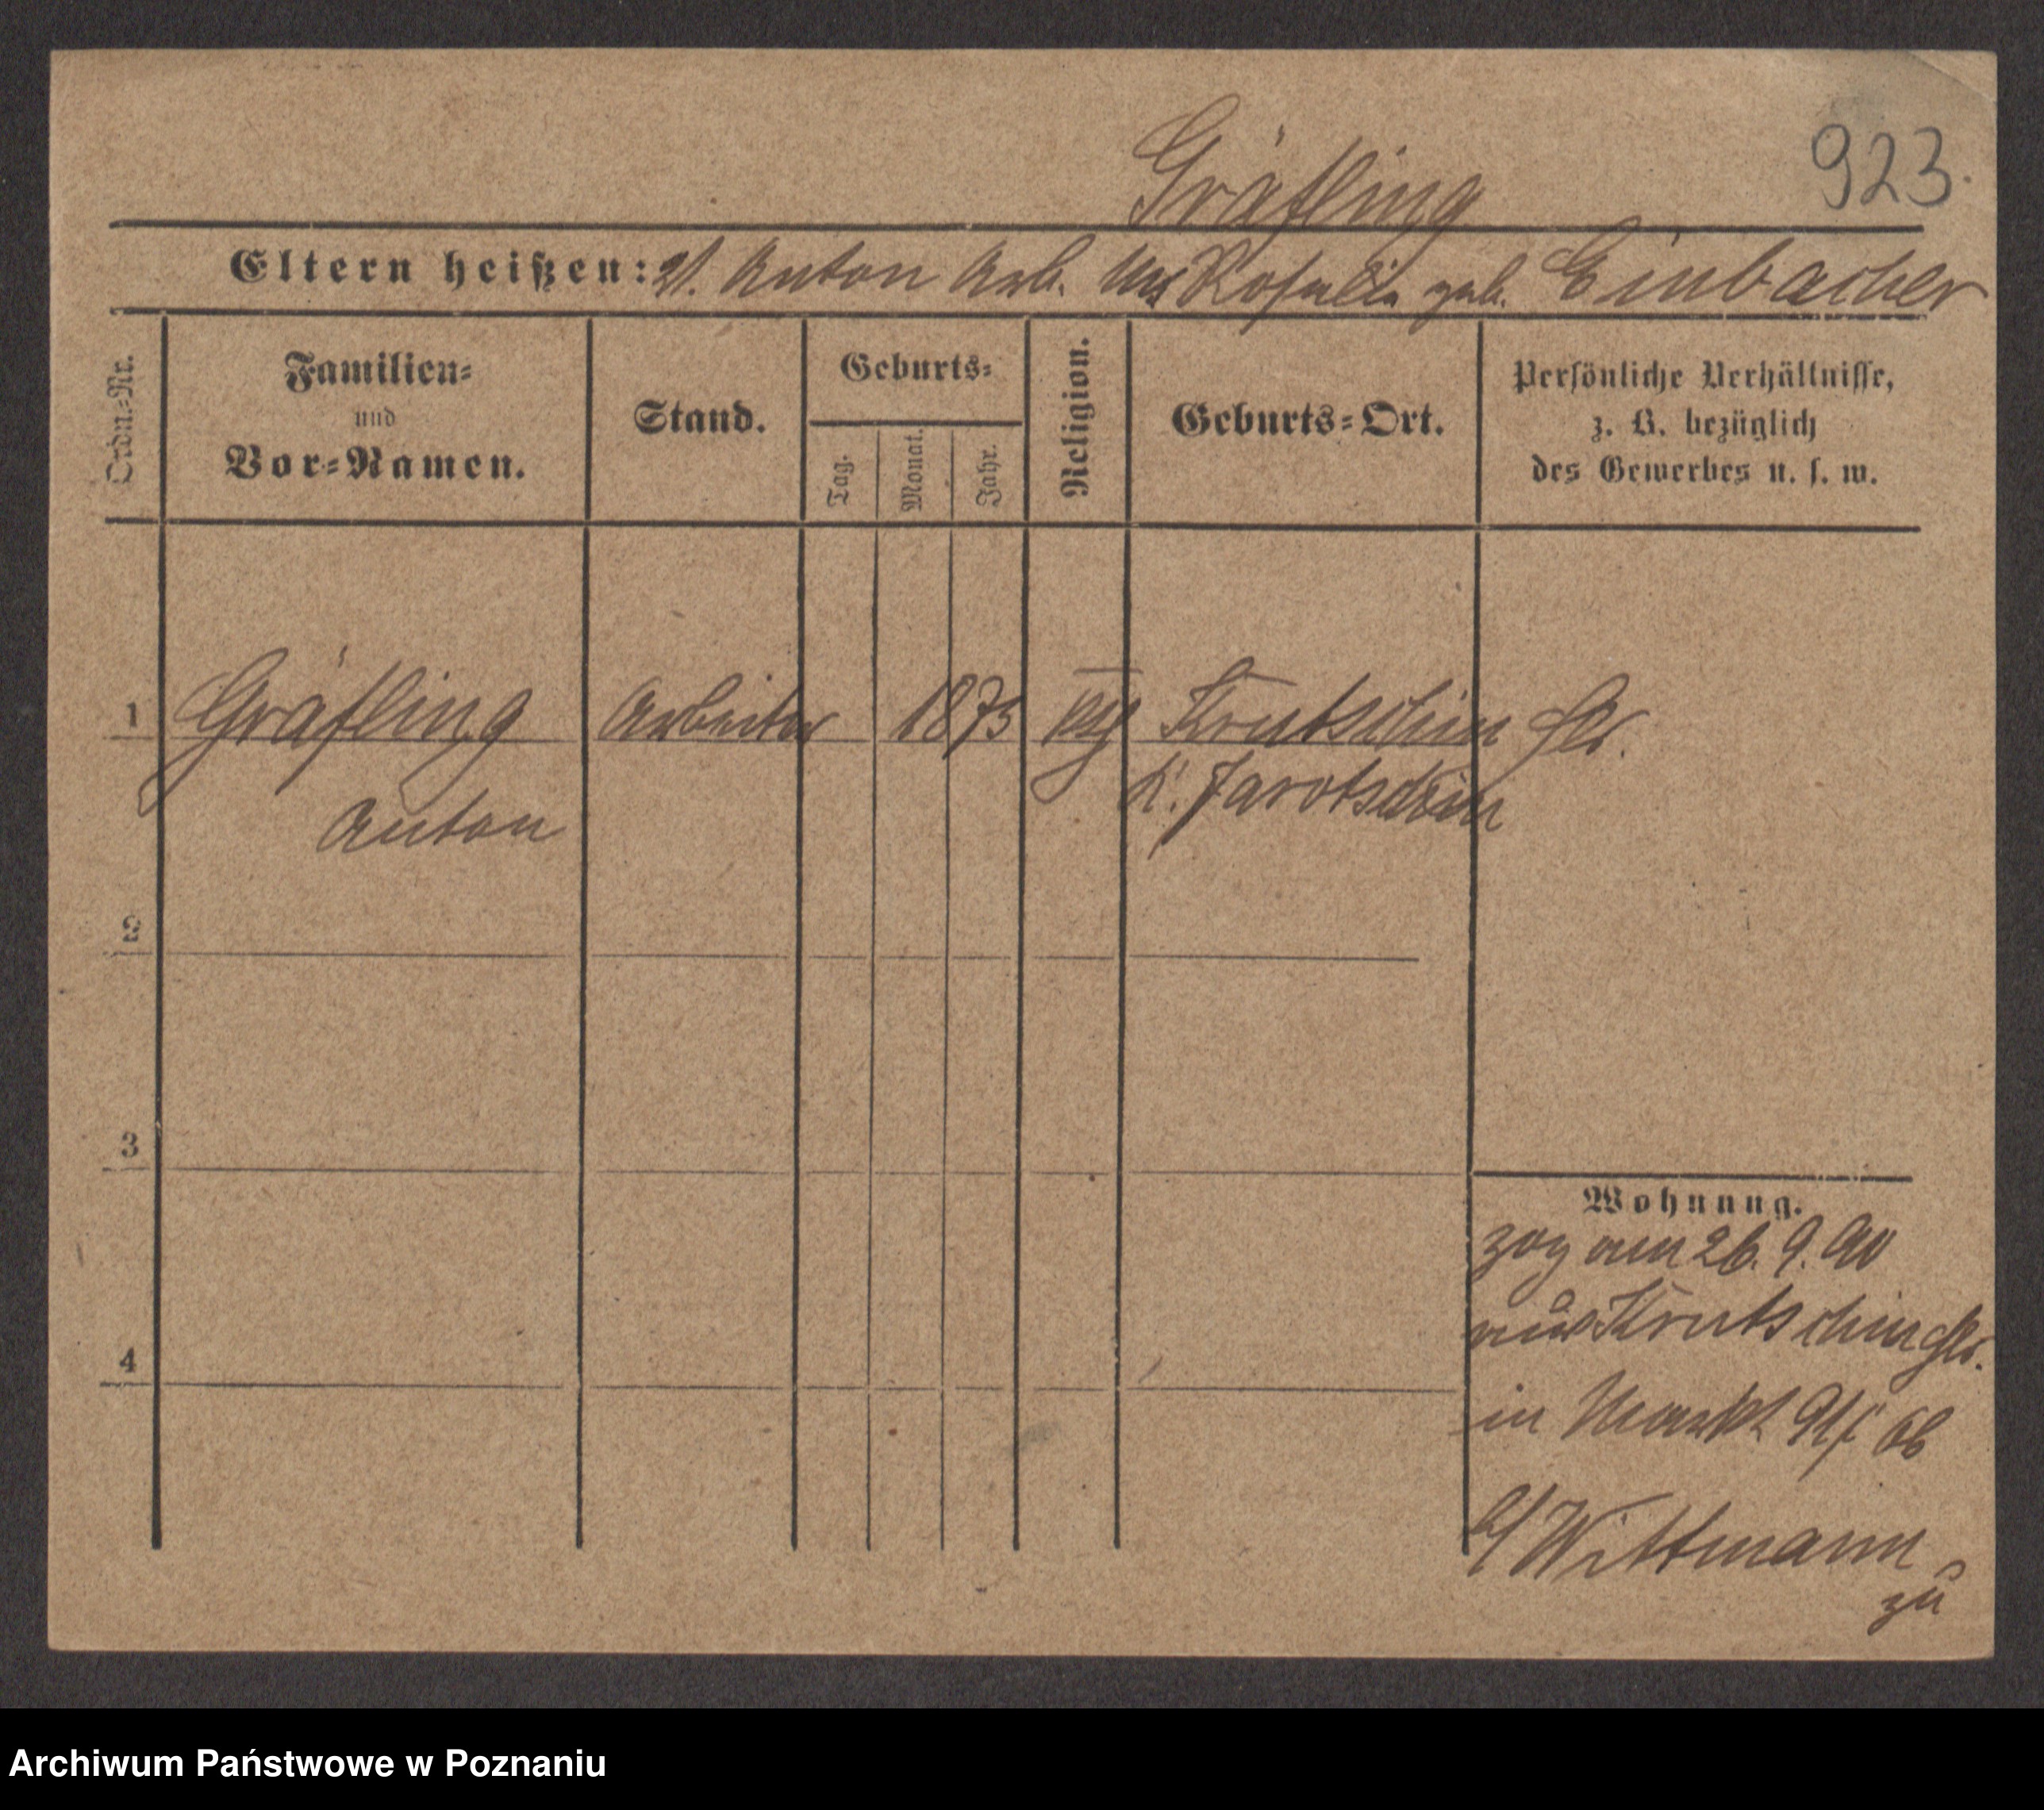 Gräfling
923.
Eltern heißen: V. Anton Arb. Mr Rosalia geb. Einbacher
Ordn.-Nr.
Familien-
und
Vor-Namen.
Stand.
Geburts-
Tag.
Monat.
Jahr.
Religion.
Geburts-Ort.
Persönliche Verhältnisse,
z. B. bezüglich
des Gewerbes u. s. w.
1 Gräfling Arbeiter 1875 Krutschin
Anton K. Jarotschin
2
3
4
Wohnung.
zog am 26. 9. 90
aus Krutschin
in Markt 91
b/ Wittmann
zu
Archiwum Państwowe w Poznaniu